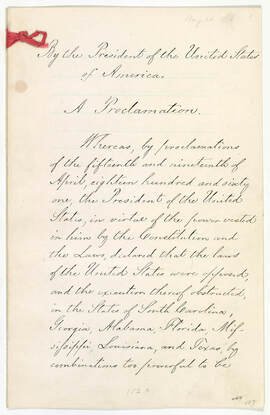 By the President of the United States
of America.
A Proclamation.
Whereas, by proclamations
of the fifteenth and nineteenth of
April, eighteen hundred and sixty
one, the President of the United
States, in virtue of the power vested
in him by the Constitution and
the Laws, declared that the laws
of the United States were opposed,
and the execution thereof obstructed,
in the State of South Carolina,
Georgia, Alabama, Florida, Mis-
sissippi, Louisiana, and Texas, by
combinations too powerful to be